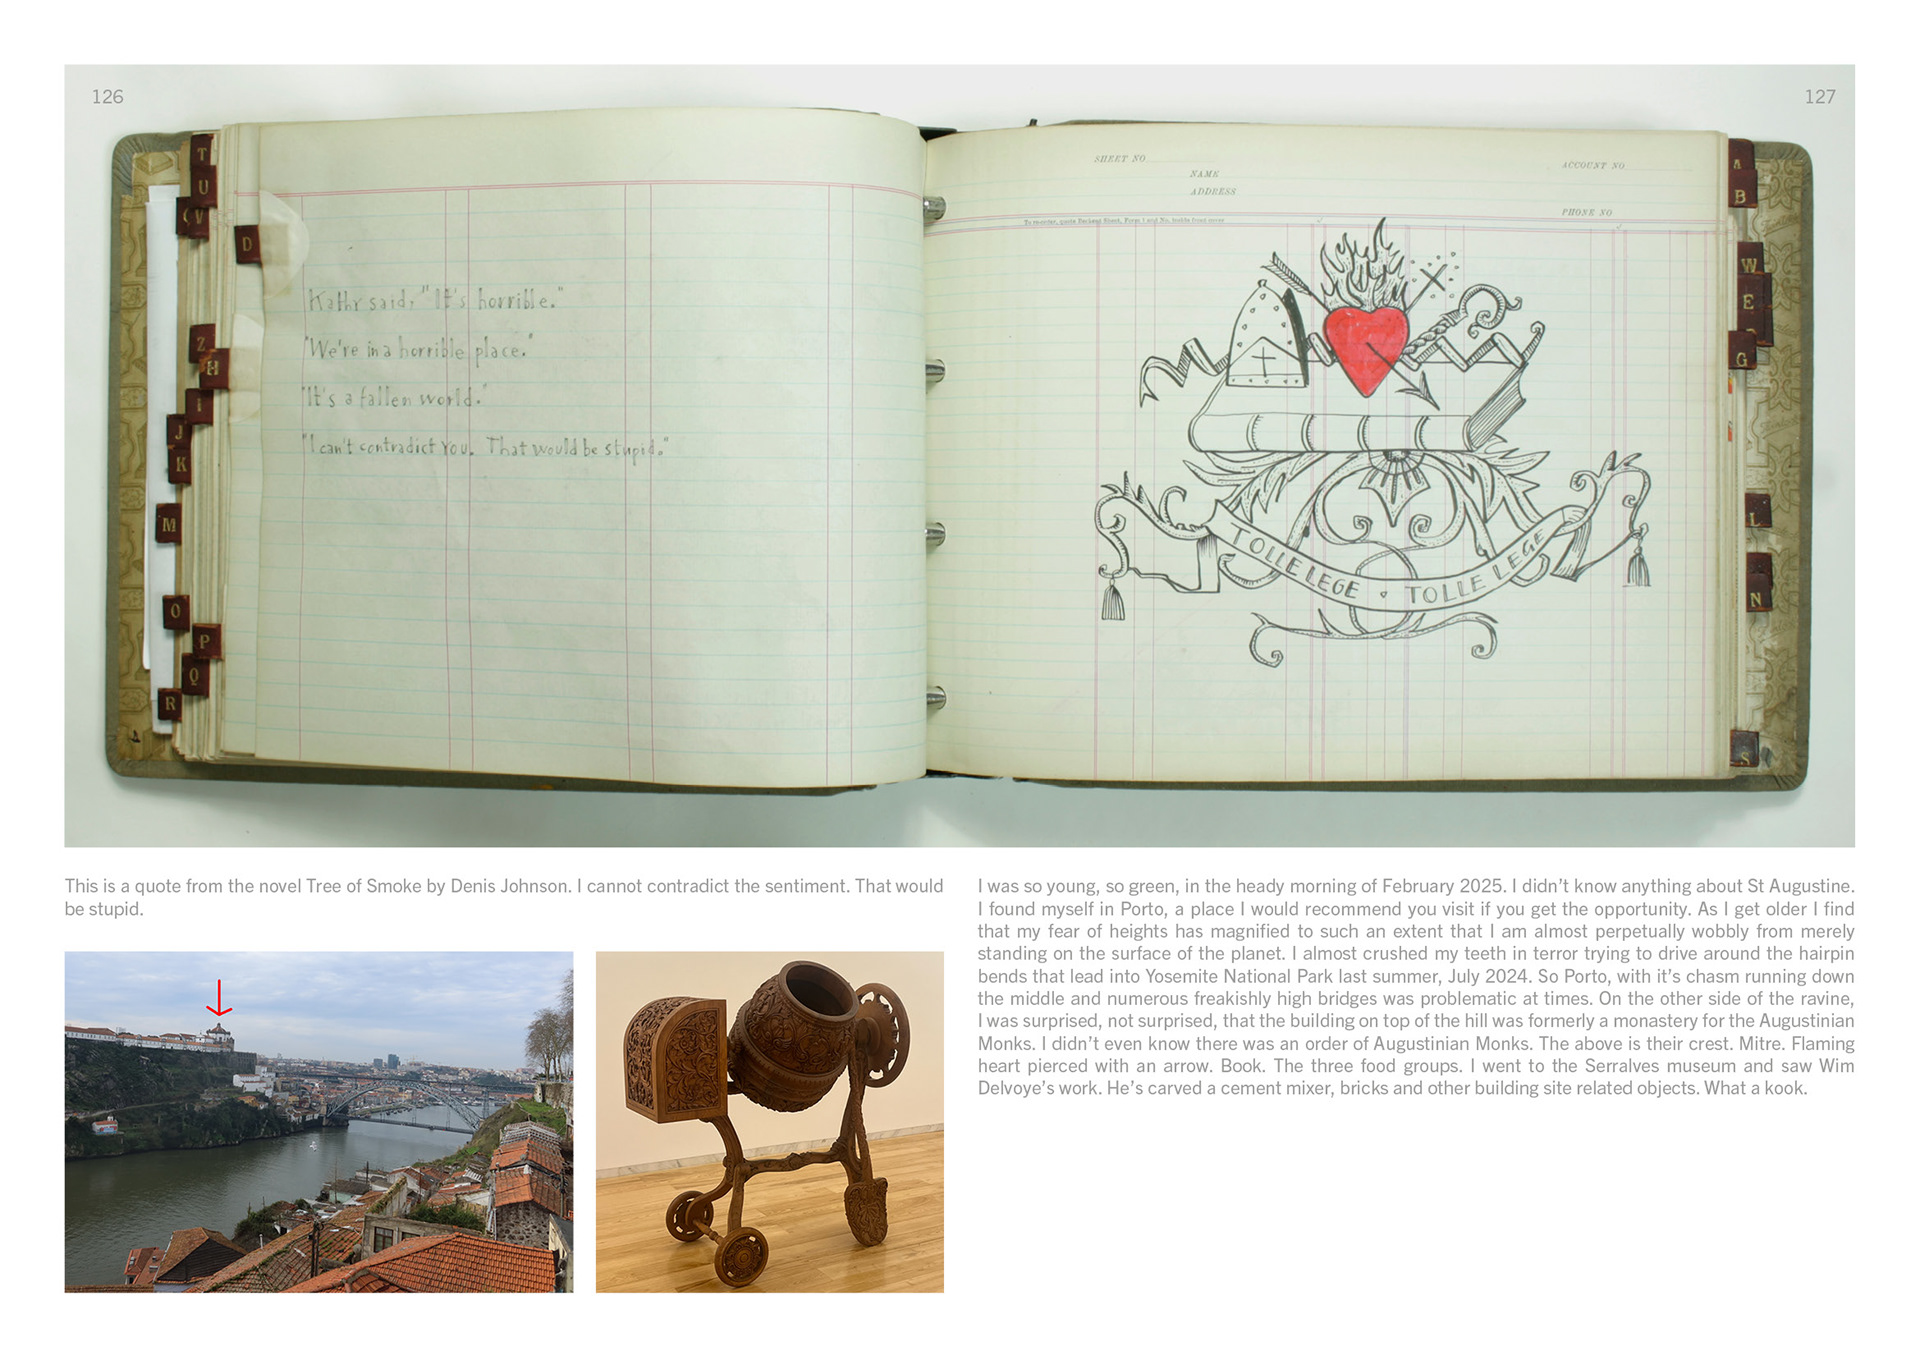 126
127
T
U
V
D
Z
H
i
J
K
M
O
P
Q
R
Kathy said, "It's horrible."
"We're in a horrible place."
"It's a fallen world."
"I can't contradict you. That would be stupid."
SHEET NO
ACCOUNT NO
NAME
ADDRESS
PHONE NO
TOLLE LEGE · TOLLE LEGE
A
B
W
E
G
L
N
S
This is a quote from the novel Tree of Smoke by Denis Johnson. I cannot contradict the sentiment. That would
be stupid.
I was so young, so green, in the heady morning of February 2025. I didn't know anything about St Augustine.
I found myself in Porto, a place I would recommend you visit if you get the opportunity. As I get older I find
that my fear of heights has magnified to such an extent that I am almost perpetually wobbly from merely
standing on the surface of the planet. I almost crushed my teeth in terror trying to drive around the hairpin
bends that lead into Yosemite National Park last summer, July 2024. So Porto, with it's chasm running down
the middle and numerous freakishly high bridges was problematic at times. On the other side of the ravine,
I was surprised, not surprised, that the building on top of the hill was formerly a monastery for the Augustinian
Monks. I didn't even know there was an order of Augustinian Monks. The above is their crest. Mitre. Flaming
heart pierced with an arrow. Book. The three food groups. I went to the Serralves museum and saw Wim
Delvoye's work. He's carved a cement mixer, bricks and other building site related objects. What a kook.